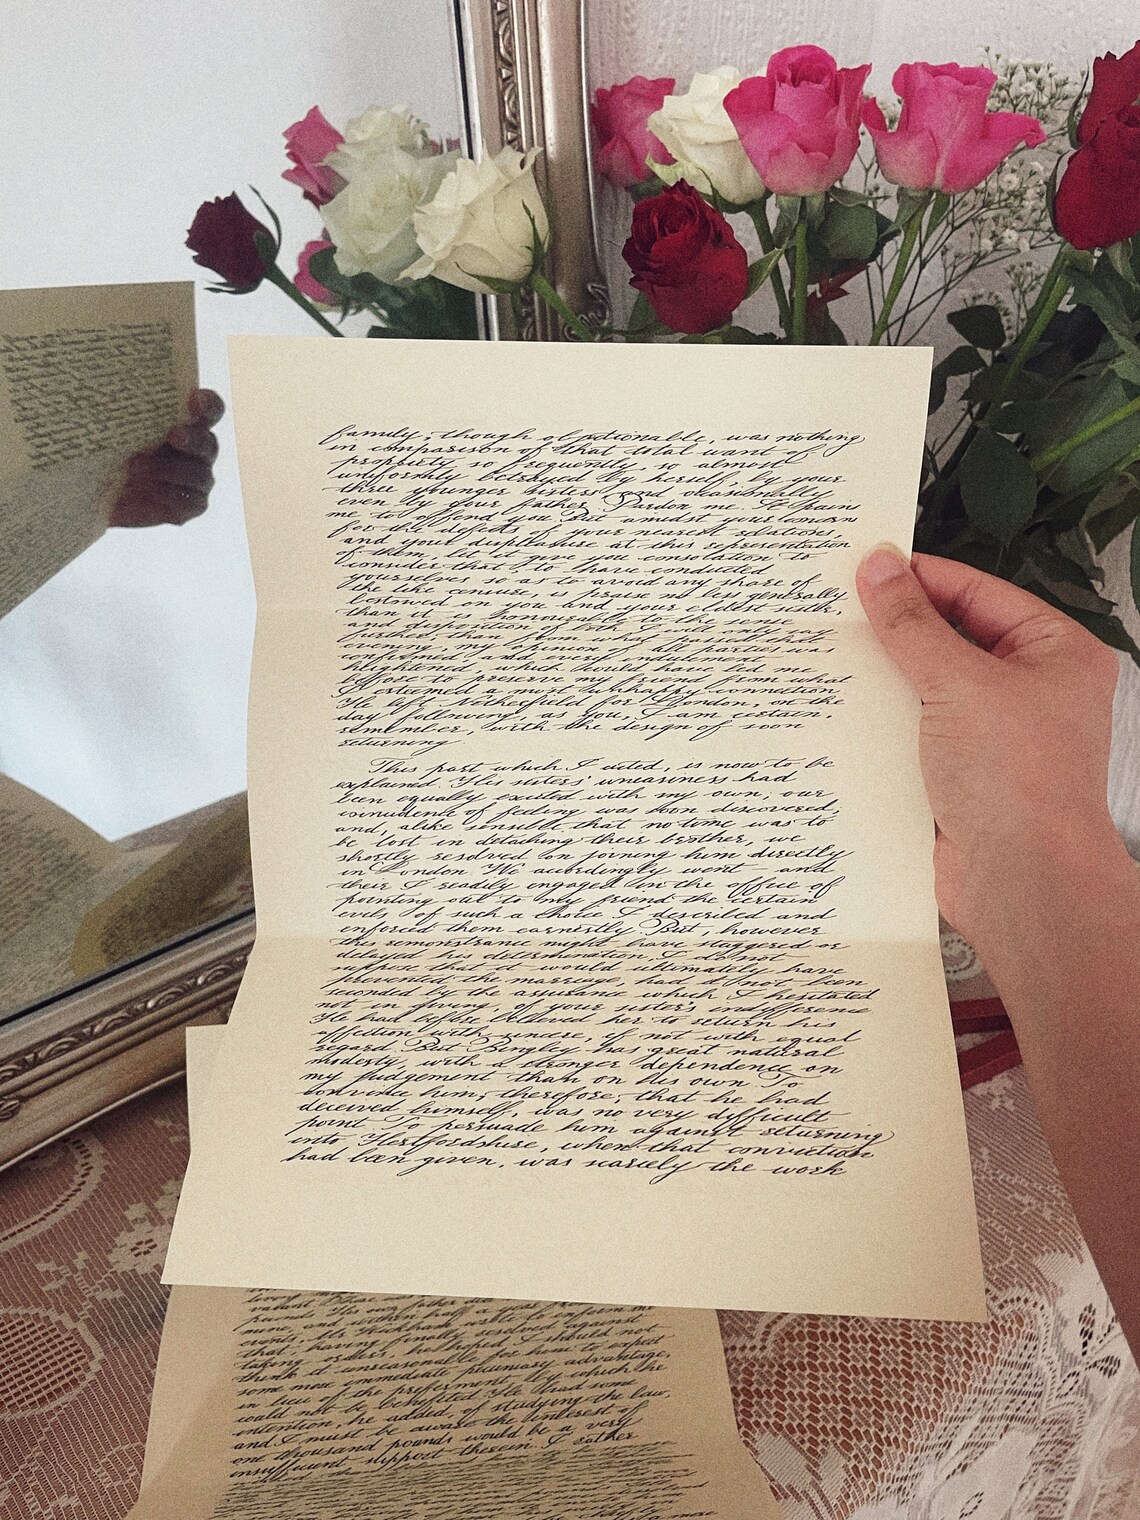 family, though objectionable, was nothing
in comparison of that total want of
propriety so frequently, so almost
uniformly betrayed by herself, by your
three younger sisters and ocasionally
even by your father. Pardon me. It pains
me to offend you. But amidst your concern
for the defects of your nearest relations,
and your displeasure at this representation
of them, let it give you consolation to
consider that, to have conducted
yourselves so as to avoid any share of
the like censure, is praise no less generally
bestowed on you and your eldest sister,
than it is honourable to the sense
and disposition of both. I will only say
further, than from what passed
evening, my opinion of all parties was
confirmed and every inducement
heightened, which would have led me
before to preserve my friend from what
I esteemed a most unhappy connection
He left Netherfield for London, on the
day following, as you, I am certain,
remember, with the design of soon
returning.
This part which I acted, is now to be
explained. His sisters' uneasiness had
been equally excited with my own; our
coincidence of feeling was soon discovered,
and, alike sensible that no time was to
be lost in detaching their brother, we
shortly resolved on joining him directly
in London We accordingly went - and
there I readily engaged in the office of
pointing out to my friend the certain
evils of such a choice I described and
enforced them earnestly. But, however
this remonstrance might have staggered or
delayed his determination, I do not
suppose that it would ultimately have
prevented the marriage, had it not been
seconded by the assurance which I hesitated
not in giving, of your sister's indifference
He had before believed her to return his
affection with sincere, if not with equal
regard But Bingley has great natural
modesty with a stronger dependence on
my judgement than on his own. To
convince him, therefore, that he had
deceived himself, was no very difficult
point. To persuade him against returning
into Hertfordshire, when that conviction
had been given, was scarcely the work
His own father
mine, and within half a year from
events, Mr Wickham wrote to inform me
that, having finally resolved against
taking orders, he hoped I should not
think it unreasonable for him to expect
some more immediate pecuniary advantage,
in lieu of the preferment by which he
could not be benefited He had some
intention, he added, of studying the law,
and I must be aware the interest of
one thousand pounds would be a very
insufficient support therein. I rather